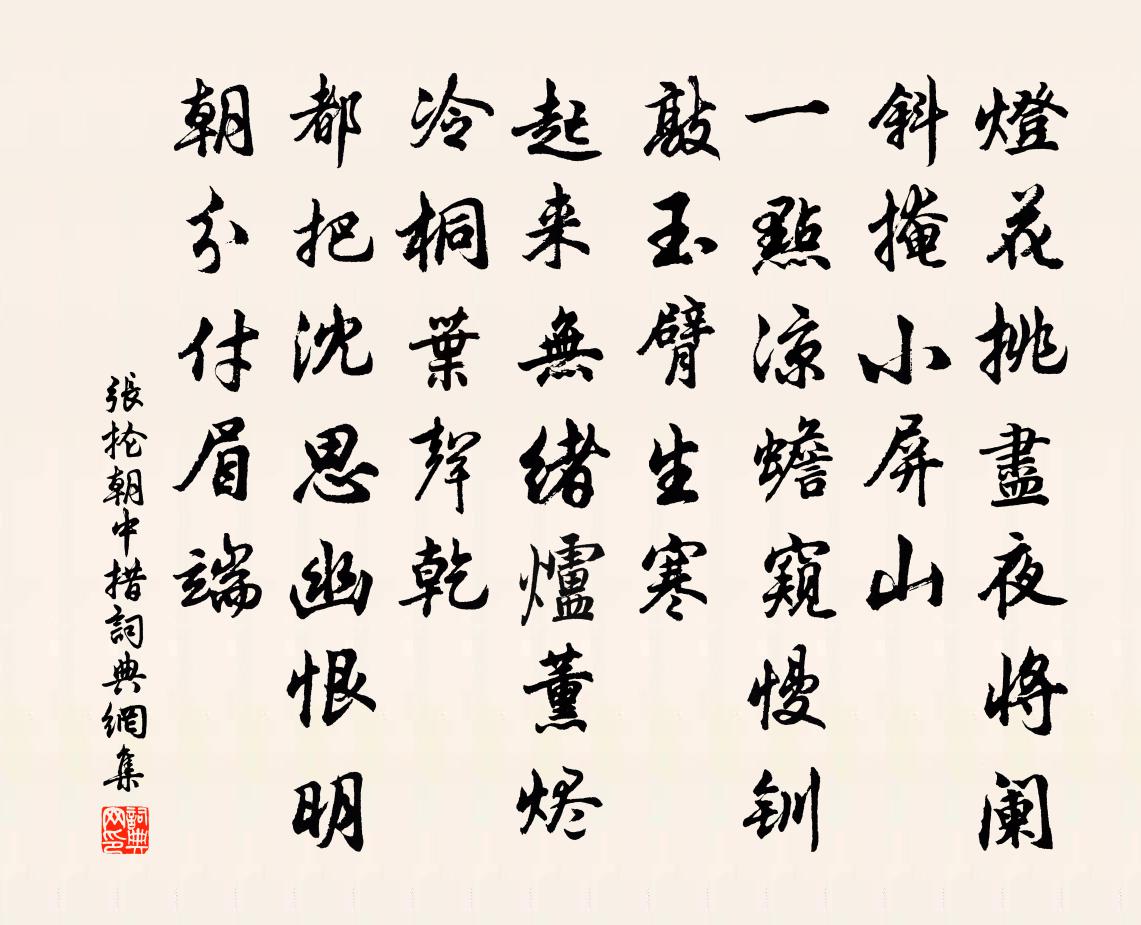 燈花挑盡夜將闌
斜掩小屏山
一點涼蟾窺慢釧
敲玉臂生寒
起来無緒爐薰烬
冷桐葉聲乾
都把沈思幽恨明
朝分付眉端
張抡朝中措詞典網集
詞典网印